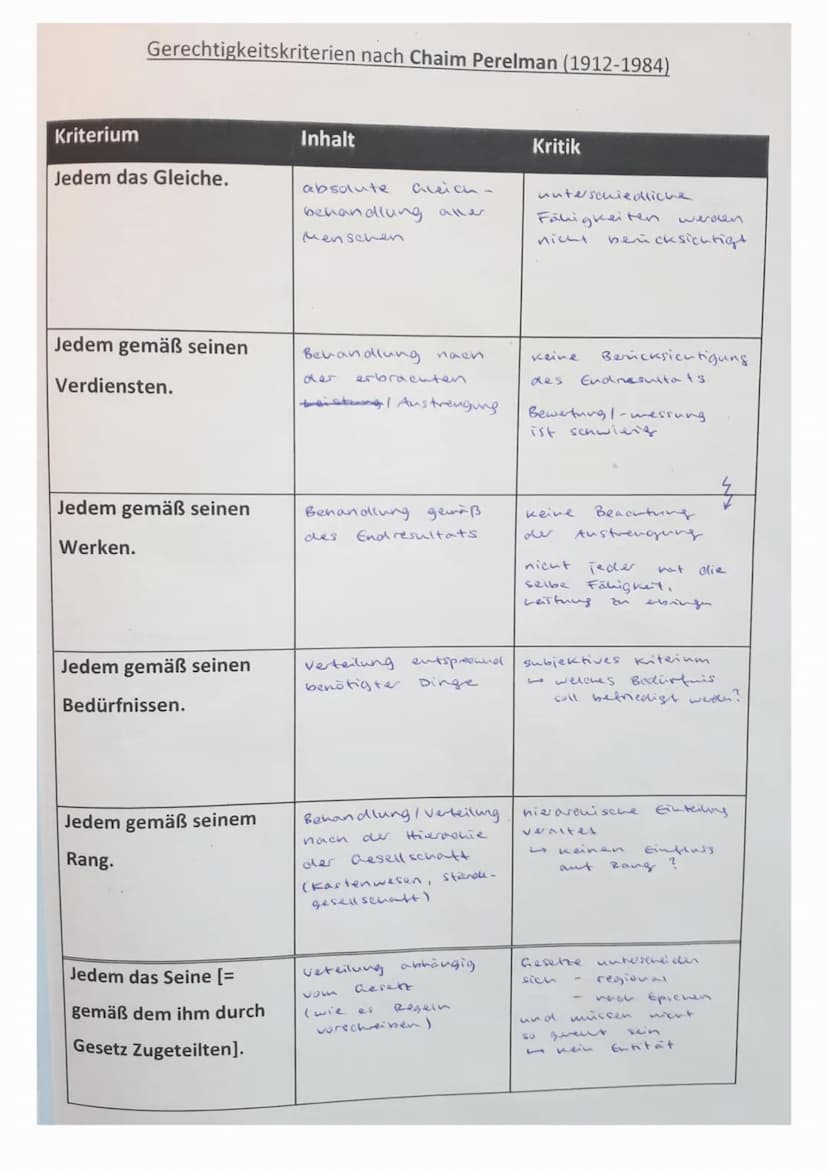 Gerechtigkeitskriterien nach Chaim Perelman (1912-1984)
Kriterium
Inhalt
Kritik
Jedem das Gleiche.
absolute Gleich-
behandlung aller
Menschen
unterschiedliche
Fähigkeiten werden
nicht berücksichtigt
Jedem gemäß seinen
Verdiensten.
Behandlung nach
der erbrachten
Leistung / Anstrengung
keine Berücksichtigung
des Endresultats
Bewertung/-messung
ist schwierig
Jedem gemäß seinen
Werken.
Behandlung gemäß
des Endresultats
keine Beachtung
der Anstrengung
nicht jeder hat die
selbe Fähigkeit,
Leistung zu erbringen
Jedem gemäß seinen
Bedürfnissen.
Verteilung entsprechend
benötigter Dinge
subjektives Kriterium
↳ welches Bedürfnis
soll befriedigt werden?
Jedem gemäß seinem
Rang.
Behandlung/Verteilung
nach der Hierachie
der Gesellschaft
(Kastenwesen, Stände-
gesellschaft)
hierarchische Einteilung
veraltet
↳ keinen Einfluss
auf Rang?
Jedem das Seine [=
gemäß dem ihm durch
Gesetz Zugeteilten].
Verteilung abhängig
vom Gesetz
(wie es Regeln
vorschreiben)
Gesetze unterscheiden
sich - regional
- nach Epochen
und müssen nicht
so gerecht sein
↳ kein Entität